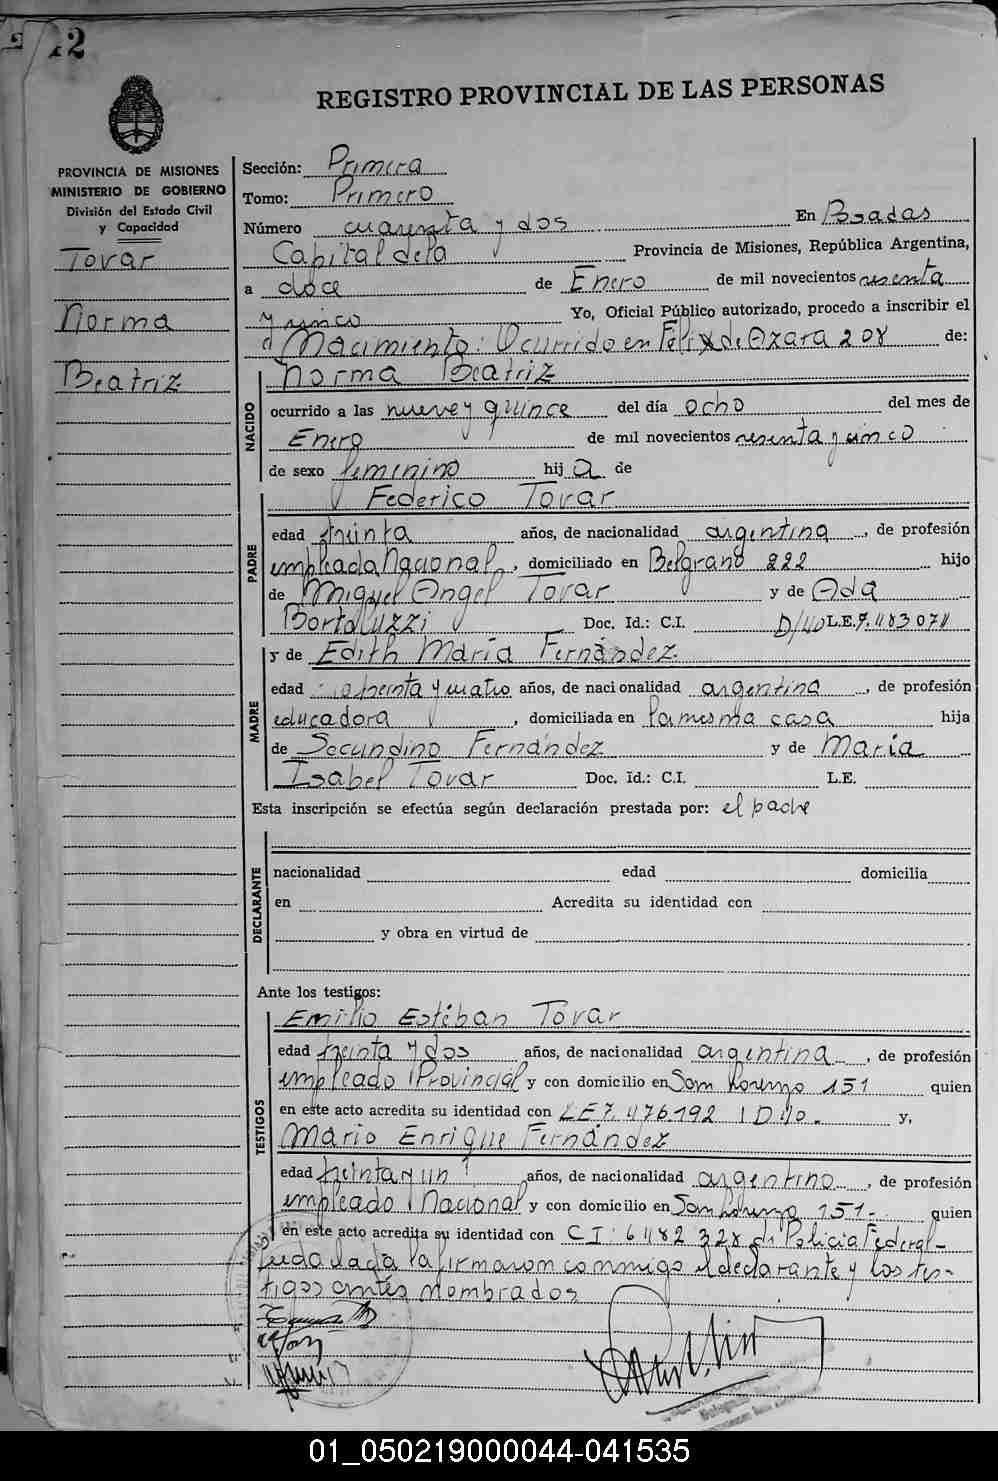 12
REGISTRO PROVINCIAL DE LAS PERSONAS
PROVINCIA DE MISIONES
MINISTERIO DE GOBIERNO
División del Estado Civil
y Capacidad
Tovar
Norma
Beatriz
Sección: Primera
Tomo: Primero
Número cuarenta y dos En Posadas
Capital de la Provincia de Misiones, República Argentina,
a doce de Enero de mil novecientos sesenta
y cinco Yo, Oficial Público autorizado, procedo a inscribir el
Nacimiento: Ocurrido en Felix de Azara 208 de:
NACIDO
Norma Beatriz
ocurrido a las nueve y quince del día ocho del mes de
Enero de mil novecientos sesenta y cinco
de sexo femenino hij a de
PADRE
Federico Tovar
edad treinta años, de nacionalidad argentina, de profesión
empleado Nacional, domiciliado en Belgrano 222 hijo
de Miguel Angel Tovar y de Ada
Bortoluzzi Doc. Id.: C.I. D/40 L.E. 7.483074
MADRE
y de Edith María Fernández
edad treinta y cuatro años, de nacionalidad argentina, de profesión
educadora, domiciliada en la misma casa hija
de Secundino Fernández y de María
Isabel Tovar Doc. Id.: C.I. L.E.
Esta inscripción se efectúa según declaración prestada por: el padre
DECLARANTE
nacionalidad edad domicilia
en Acredita su identidad con
y obra en virtud de
Ante los testigos:
TESTIGOS
Emilio Estéban Tovar
edad treinta y dos años, de nacionalidad argentina, de profesión
empleado Provincial y con domicilio en San Lorenzo 151 quien
en este acto acredita su identidad con L E 7.476.192 D 40. y,
Mario Enrique Fernández
edad treinta y un años, de nacionalidad argentino, de profesión
empleado Nacional y con domicilio en San Lorenzo 151- quien
en este acto acredita su identidad con C I: 6482 328 de Policía Federal-
Leida la firmaron conmigo el declarante y los tes-
tigos antes nombrados
01_050219000044-041535